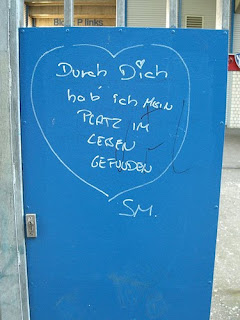 Block P links
Durch Dich
hab' ich MEIN
PLATZ IM
LEBEN
GEFUNDEN
SM.